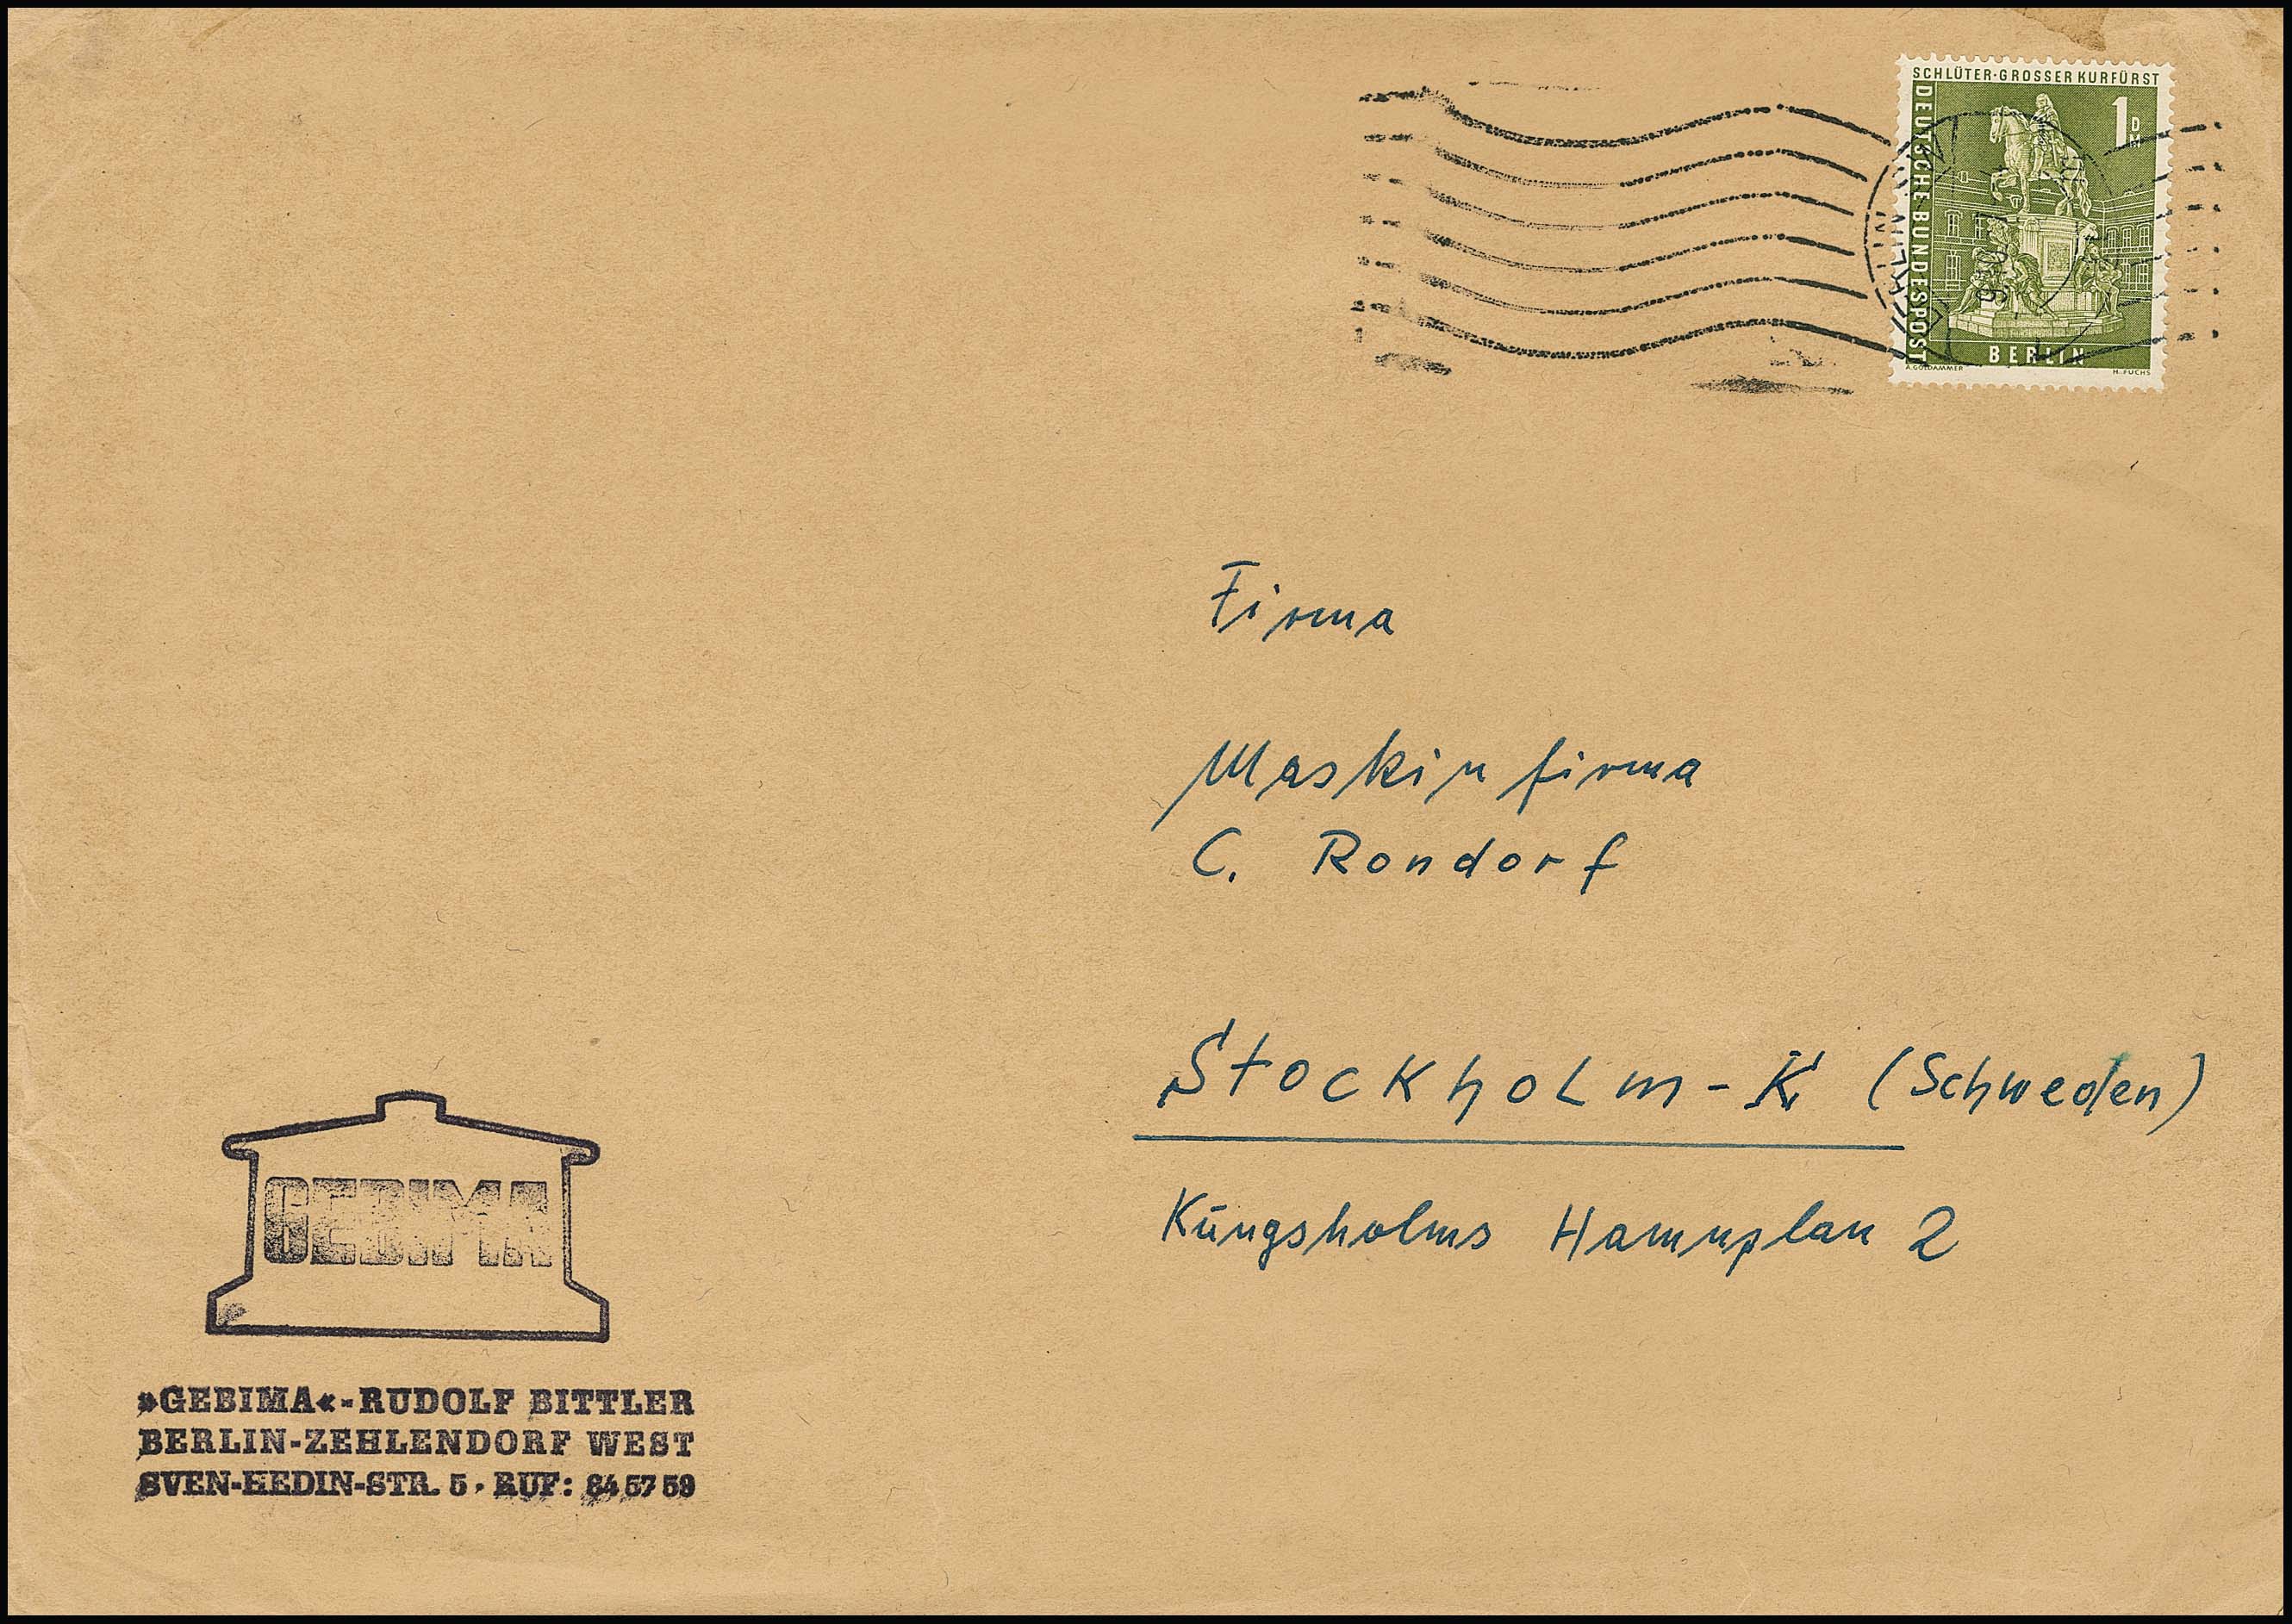 SCHLÜTER·GROSSER KURFÜRST
DEUTSCHE BUNDESPOST
1 DM
BERLIN
A. GOLDAMMER
H. FUCHS
BERLIN
Firma
Maskinfirma
C. Rondorf
Stockholm-K (Schweden)
Kūngsholms Hamnplan 2
GEBIMA
»GEBIMA«-RUDOLF BITTLER
BERLIN-ZEHLENDORF WEST
SVEN-HEDIN-STR. 5 · RUF: 84 57 59